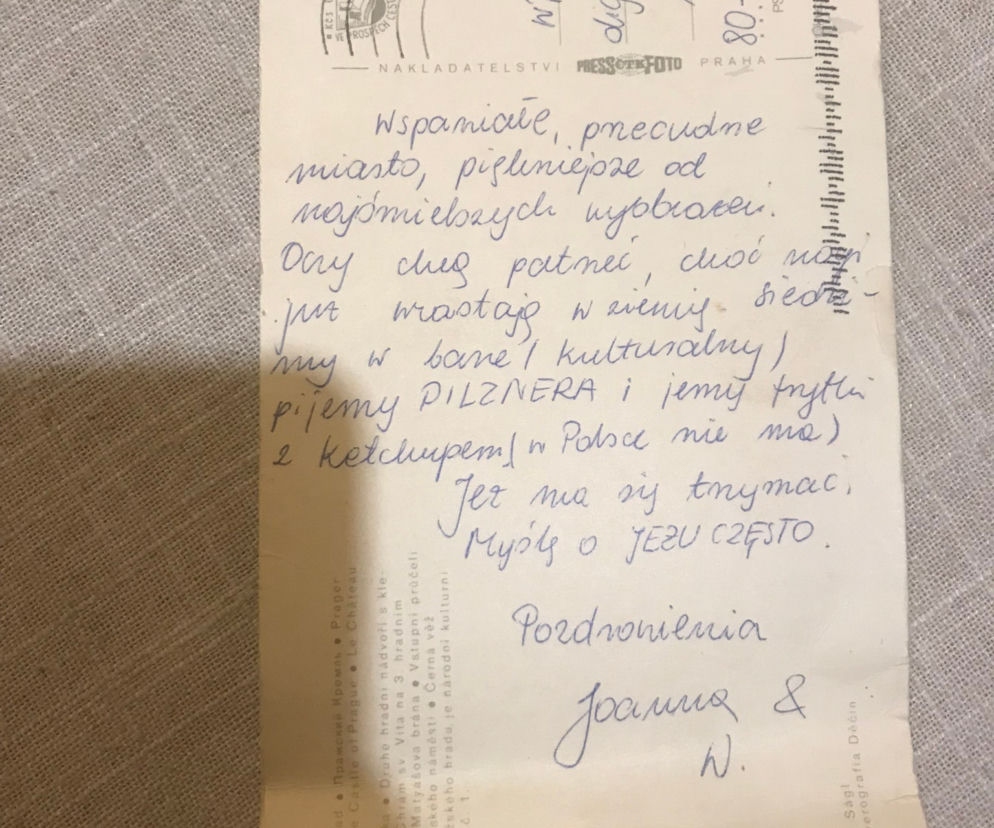 Kčs
VE PROSPĚCH
80-
NAKLADATELSTVÍ PRESSČTKFOTO PRAHA
Wspaniałe, przecudne
miasto, piękniejsze od
najśmielszych wyobrażeń.
Oczy chcą patrzeć, choć nogi
już wrastają w ziemię siedzi-
my w barze (kulturalny)
pijemy PILZNERA i jemy frytki
z ketchupem (w Polsce nie ma)
Jeż ma się trzymać.
Myślę o JEŻU CZĘSTO.
Pozdrowienia
Joanna &
W.
Пражский Кремль • Prager
Castle of Prague • Le Château
• Druhé hradní nádvoří s kle-
chrám sv. Víta na 3. hradním
Matyášova brána • Vstupní průčelí
ského náměstí • Černá věž
žského hradu je národní kulturní
č. 1.
Ságl
erografia Děčín